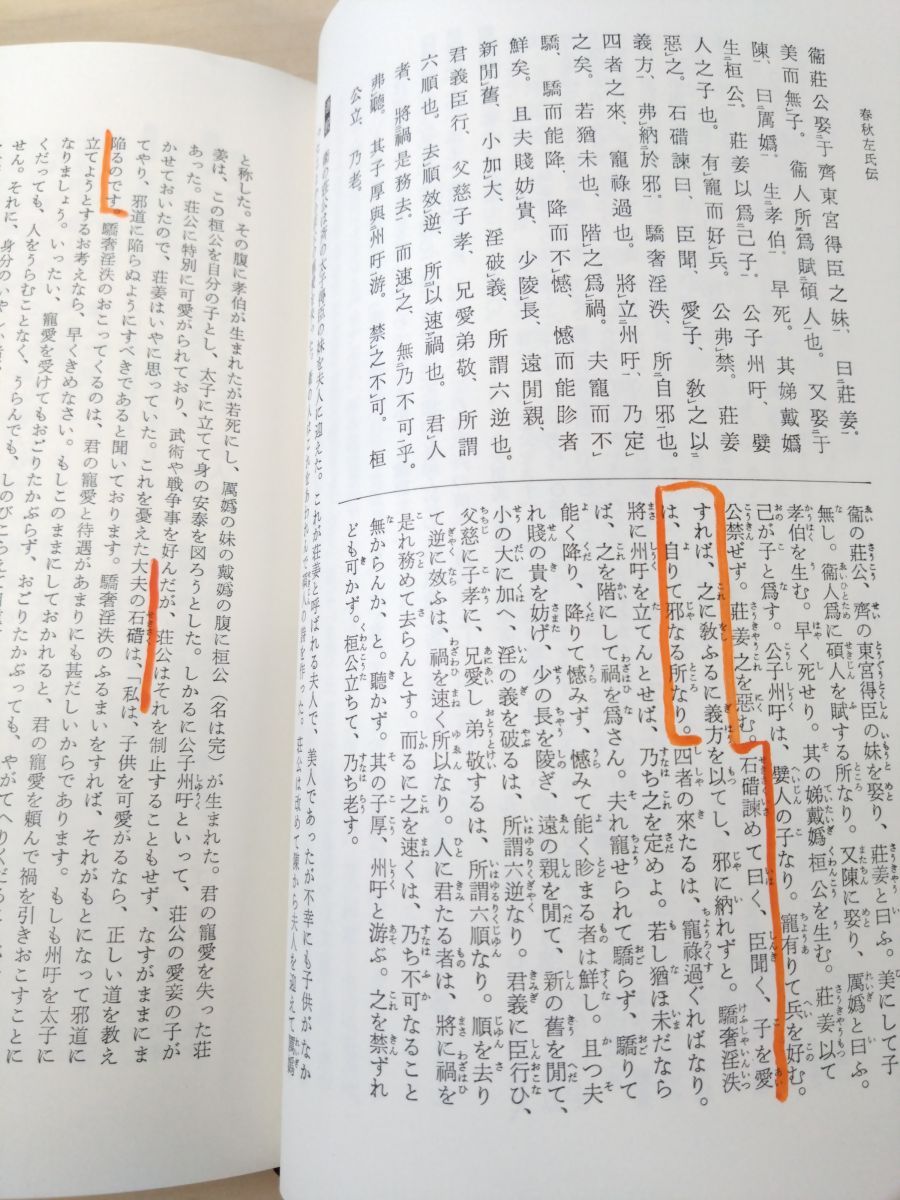 春秋左氏伝
衞莊公娶于齊東宮得臣之妹、曰莊姜。
美而無子。衞人所爲賦碩人也。又娶于
陳、曰厲嬀、生孝伯、早死。其娣戴嬀
生桓公、莊姜以爲己子。公子州吁、嬖
人之子也。有寵而好兵。公弗禁。莊姜
惡之。石碏諫曰、臣聞、愛子、敎之以
義方、弗納於邪。驕奢淫泆、所自邪也。
四者之來、寵祿過也。將立州吁、乃定
之矣。若猶未也、階之爲禍。夫寵而不
驕、驕而能降、降而不憾、憾而能眕者
鮮矣。且夫賤妨貴、少陵長、遠閒親、
新閒舊、小加大、淫破義、所謂六逆也。
君義臣行、父慈子孝、兄愛弟敬、所謂
六順也。去順效逆、所以速禍也。君人
者、將禍是務去、而速之、無乃不可乎。
弗聽。其子厚與州吁游。禁之不可。桓
公立、乃老。
衞の莊公、齊の東宮得臣の妹を娶り、莊姜と曰ふ。美にして子
無し。衞人爲に碩人を賦する所なり。又陳に娶り、厲嬀と曰ふ。
孝伯を生む。早く死せり。其の娣戴嬀桓公を生む。莊姜以て
己が子と爲す。公子州吁は、嬖人の子なり。寵有りて兵を好む。
公禁ぜず。莊姜之を惡む。石碏諫めて曰く、臣聞く、子を愛
すれば、之に敎ふるに義方を以てし、邪に納れずと。驕奢淫泆
は、自りて邪なる所なり。四者の來たるは、寵祿過ぐればなり。
將に州吁を立てんとせば、乃ち之を定めよ。若し猶ほ未だなら
ば、之を階にして禍を爲さん。夫れ寵せられて驕らず、驕りて
能く降り、降りて憾みず、憾みて能く眕まる者は鮮し。且つ夫
れ賤の貴を妨げ、少の長を陵ぎ、遠の親を閒て、新の舊を閒て、
小の大に加へ、淫の義を破るは、所謂六逆なり。君義に臣行ひ、
父慈に子孝に、兄愛し弟敬するは、所謂六順なり。順を去り
て逆に效ふは、禍を速く所以なり。人に君たる者は、將に禍を
是れ務めて去らんとす。而るに之を速くは、乃ち不可なること
無からんか、と。聽かず。其の子厚、州吁と游ぶ。之を禁ずれ
ども可かず。桓公立ちて、乃ち老す。
の妹を夫人に迎えた。これが荘姜と呼ばれる夫人で、美人であったが不幸にも子供がなか
の詩を作った。荘公は改めて陳から夫人を迎えて厲嬀
と称した。その腹に孝伯が生まれたが若死にし、厲嬀の妹の戴嬀の腹に桓公(名は完)が生まれた。君の寵愛を失った荘
姜は、この桓公を自分の子とし、太子に立てて身の安泰を図ろうとした。しかるに公子州吁といって、荘公の愛妾の子が
あった。荘公に特別に可愛がられており、武術や戦争事を好んだが、荘公はそれを制止することもせず、なすがままにま
かせておいたので、荘姜はいやに思っていた。これを憂えた大夫の石碏は、「私は、子供を可愛がるなら、正しい道を教え
てやり、邪道に陥らぬようにすべきであると聞いております。驕奢淫泆のふるまいをすれば、それがもとになって邪道に
陥るのです。驕奢淫泆のおこってくるのは、君の寵愛と待遇があまりにも甚だしいからであります。もしも州吁を太子に
立てようとするお考えなら、早くきめなさい。もしこのままにしておかれると、君の寵愛を頼んで禍を引きおこすことに
なりましょう。いったい、寵愛を受けてもおごりたかぶらず、おごりたかぶっても、やがてへりくだ
くだっても、人をうらむことなく、うらんでも、しのびこらえて
せん。それに、身分のいやしい